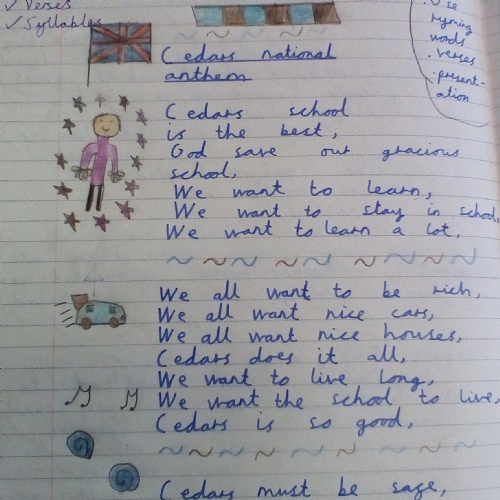 ✓ Verses
✓ Syllables
. Use
ryming
words
. verses
. present-
ation
Cedars national
anthem
Cedars school
is the best,
God save our gracious
school,
We want to learn,
We want to stay in school,
We want to learn a lot,
We all want to be rich,
We all want nice cars,
We all want nice houses,
Cedars does it all,
We want to live long,
We want the school to live,
Cedars is so good,
Cedars must be sage,